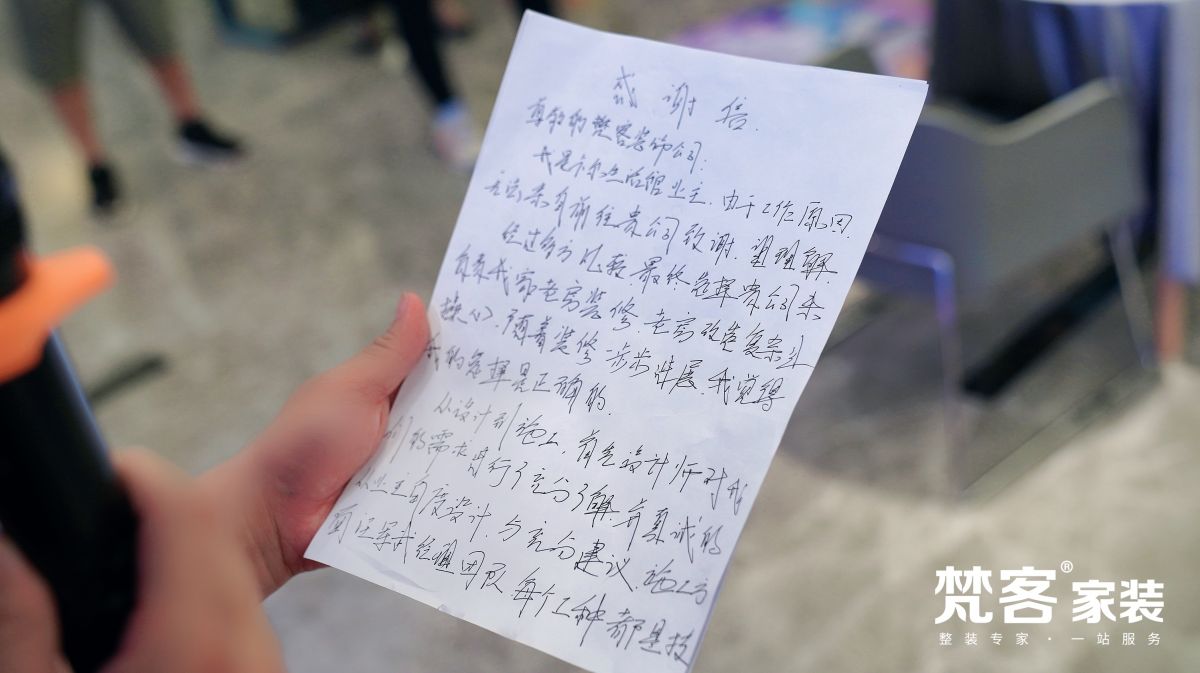 感谢信.
尊敬的梵客装饰公司:
我是卡尔生活馆业主,由于工作原因.
无法亲自前往贵公司致谢.望理解.
经过多方比较.最终选择贵公司来
负责我家老房装修.老房改造复杂且
操心.随着装修一步步进展.我觉得
我的选择是正确的.
从设计到施工.首先设计师对我
们的需求进行了充分了解.并真诚的
从业主角度设计.充分建议.施工方
面 经理团队 每个工种都是技
梵客® 家装
整装专家·一站服务